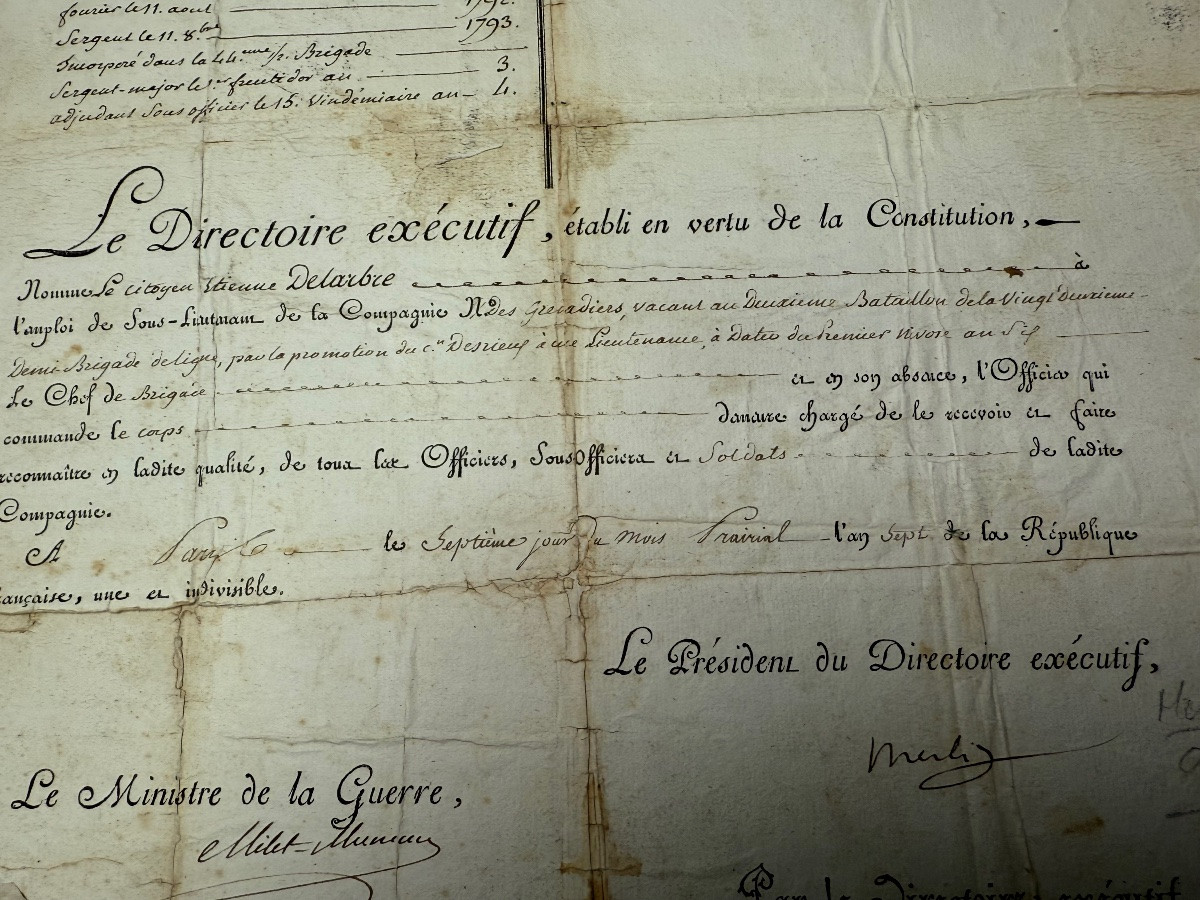 fourier le 11. aout 1792.
Sergent le 11. 8.bre 1793.
Incorporé dans la 44.eme 1/2 Brigade
Sergent-major le 1.er fructidor an 3.
adjudant Sous officier le 15. Vindémiaire an 4.
Le Directoire exécutif, établi en vertu de la Constitution,
Nomme Le Citoyen Etienne Delarbre à
l'emploi de Sous-Lieutenant de la Compagnie Des Grenadiers, vacant au Deuxième Bataillon de la Vingt Deuxième
Demi Brigade de ligne, par la promotion du c.en Desrieux à une Lieutenance, à Dater du Premier Nivose an Six
Le Chef de Brigade et en son absence, l'Officier qui
commande le corps demeure chargé de le recevoir et faire
reconnaître en ladite qualité, de tous les Officiers, SousOfficiers et Soldats de ladite
Compagnie.
A Paris le Septième jour du mois Prairial l'an Sept de la République
ançaise, une et indivisible.
Le Président du Directoire exécutif,
Merlin
Le Ministre de la Guerre,
Milet-Mureau
Par le Directoire exécutif